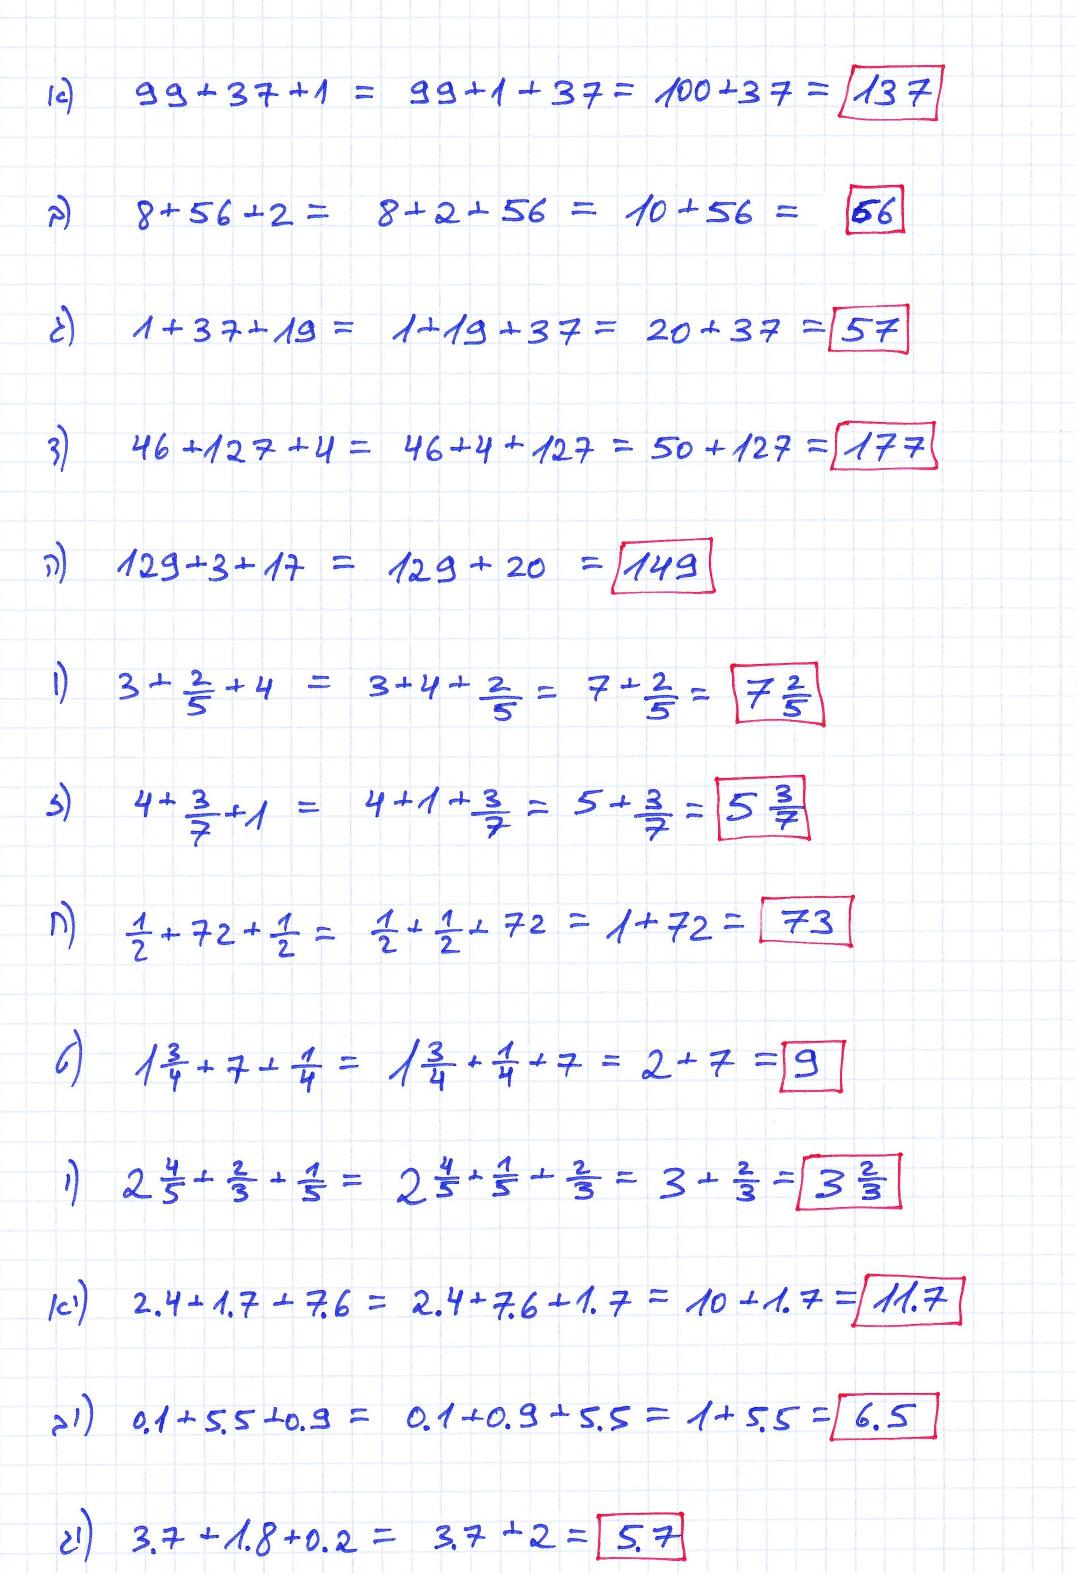 א) 99+37+1 = 99+1+37 = 100+37 = 137
ב) 8+56+2 = 8+2+56 = 10+56 = 66
ג) 1+37+19 = 1+19+37 = 20+37 = 57
ד) 46+127+4 = 46+4+127 = 50+127 = 177
ה) 129+3+17 = 129+20 = 149
ו) 3+2/5+4 = 3+4+2/5 = 7+2/5 = 7 2/5
ז) 4+3/7+1 = 4+1+3/7 = 5+3/7 = 5 3/7
ח) 1/2+72+1/2 = 1/2+1/2+72 = 1+72 = 73
ט) 1 3/4+7+1/4 = 1 3/4+1/4+7 = 2+7 = 9
י) 2 4/5+2/3+1/5 = 2 4/5+1/5+2/3 = 3+2/3 = 3 2/3
יא) 2.4+1.7+7.6 = 2.4+7.6+1.7 = 10+1.7 = 11.7
יב) 0.1+5.5+0.9 = 0.1+0.9+5.5 = 1+5.5 = 6.5
יג) 3.7+1.8+0.2 = 3.7+2 = 5.7